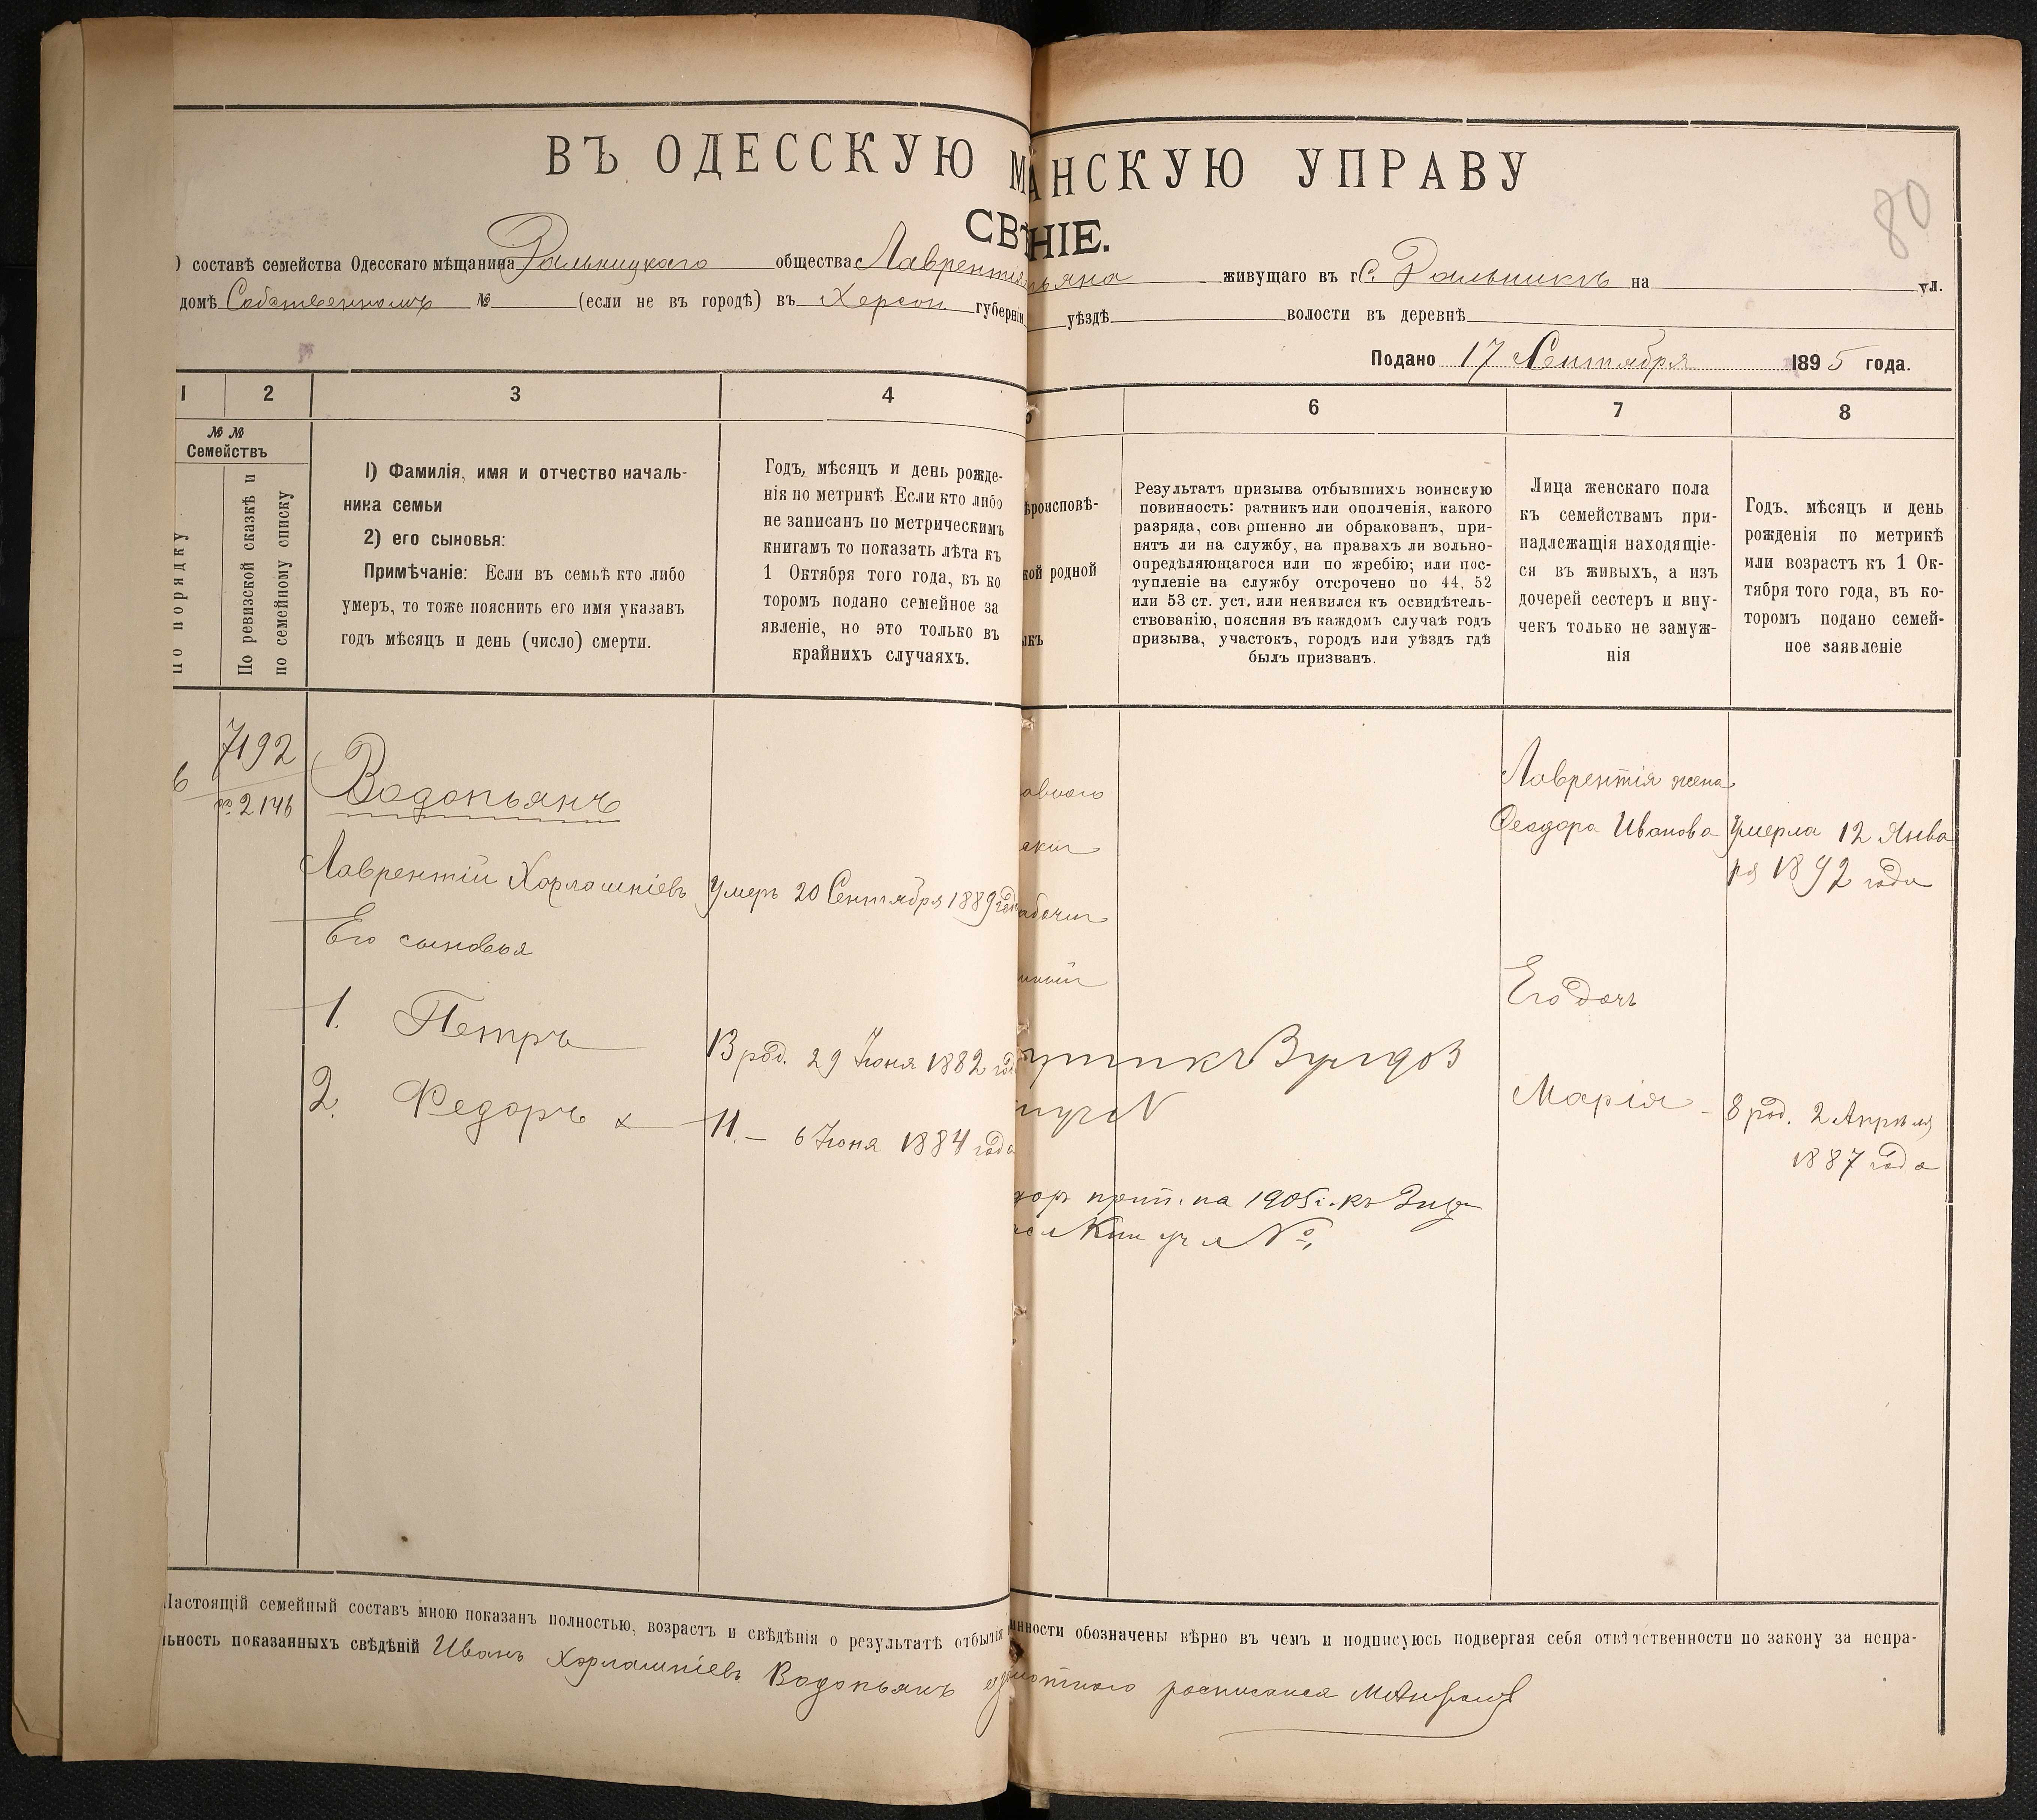 ВЪ ОДЕССКУЮ М АНСКУЮ УПРАВУ
80
СВѢ НІЕ.
) составѣ семейства Одесскаго мѣщанина Дальницкаго общества Лаврентія ьяна живущаго въ г С. Дальникъ на ул.
домѣ Собственномъ № (если не въ городѣ) въ Херсон. губерніи уѣздѣ волости въ деревнѣ
Подано 17 Сентября 1895 года.
1 2 3 4 5 6 7 8
№ №
Семействъ
По порядку
По ревизской сказкѣ и
по семейному списку
1) Фамилія, имя и отчество началь-
ника семьи
2) его сыновья:
Примѣчаніе: Если въ семьѣ кто либо
умеръ, то тоже пояснить его имя указавъ
годъ мѣсяцъ и день (число) смерти.
Годъ, мѣсяцъ и день рожде-
нія по метрикѣ. Если кто либо
не записанъ по метрическимъ
книгамъ то показать лѣта къ
1 Октября того года, въ ко
торомъ подано семейное за
явленіе, но это только въ
крайнихъ случаяхъ.
ѣроисповѣ-
кой родной
ыкъ
Результатъ призыва отбывшихъ воинскую
повинность: ратникъ или ополченія, какого
разряда, совершенно ли обракованъ, при-
нятъ ли на службу, на правахъ ли вольно-
опредѣляющагося или по жребію; или пос-
тупленіе на службу отсрочено по 44, 52
или 53 ст. уст. или неявился къ освидѣтель-
ствованію, поясняя въ каждомъ случаѣ годъ
призыва, участокъ, городъ или уѣздъ гдѣ
былъ призванъ.
Лица женскаго пола
къ семействамъ при-
надлежащія находящіе-
ся въ живыхъ, а изъ
дочерей сестеръ и вну-
чекъ только не замуж-
нія
Годъ, мѣсяцъ и день
рожденія по метрикѣ
или возрастъ къ 1 Ок-
тября того года, въ ко-
торомъ подано семей-
ное заявленіе
6 7192
2146
Водопьянъ
Лаврентій Харлампіевъ Умеръ 20 Сентября 1889 года
Его сыновья
1. Петръ 13 род. 29 Іюня 1882 года
2. Федоръ x 11. — 6 Іюня 1884 года
прип. на 1905 г. къ
№ 1
Лаврентія жена
Феодора Иванова Умерла 12 Янва
ря 1892 года
Его дочь
Марія - 8 род. 2 Апрѣля
1887 года
Настоящій семейный составъ мною показанъ полностью, возрастъ и свѣдѣнія о результатѣ отбытія инности обозначены вѣрно въ чемъ и подписуюсь подвергая себя отвѣтственности по закону за непра-
льность показанныхъ свѣдѣній Иванъ Харлампіевъ Водопьянъ мотнаго росписался